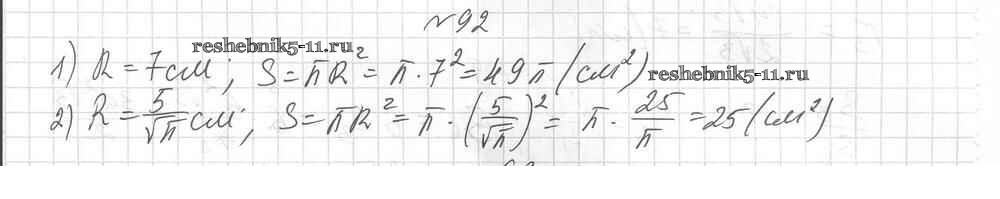 №92
reshebnik5-11.ru
1) R = 7 см; S = πR² = π · 7² = 49π (см²) reshebnik5-11.ru
2) R = 5/√π см; S = πR² = π · (5/√π)² = π · 25/π = 25 (см²)